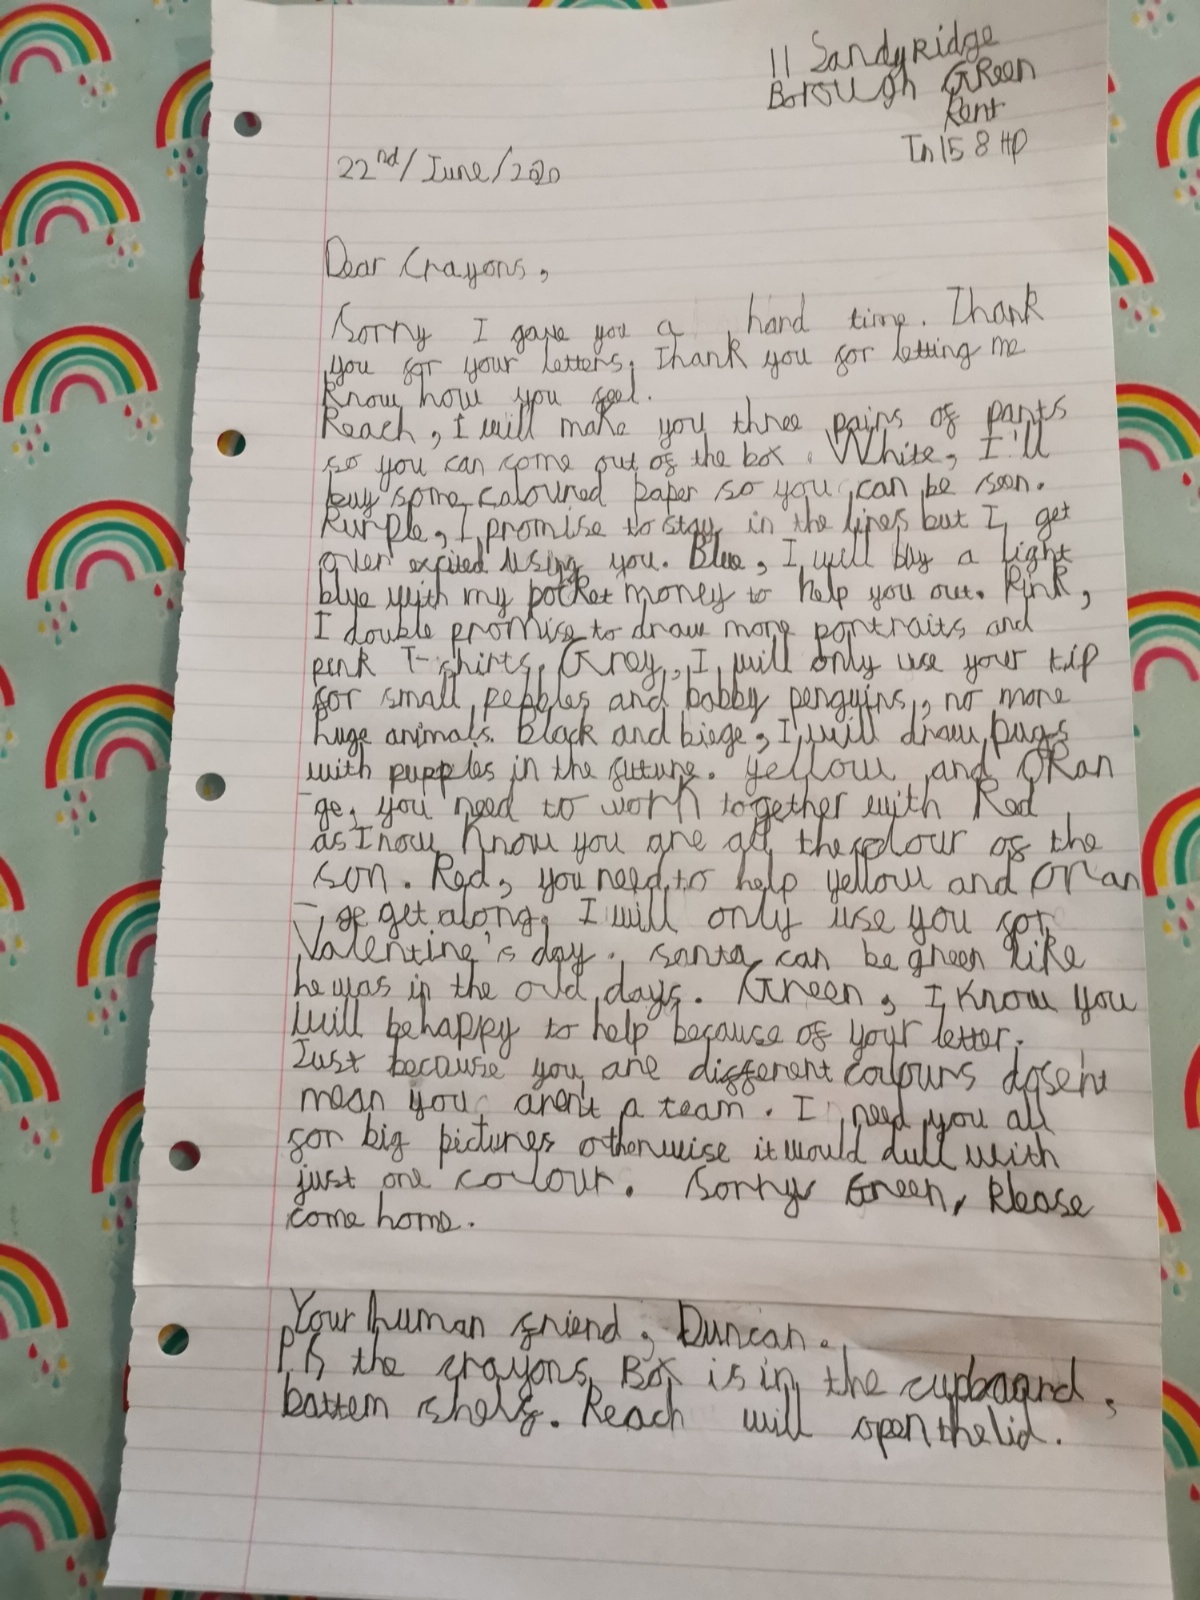 11 Sandyridge
Borough GReen
Kent
Tn15 8HP
22nd/June/2020
Dear Crayons,
Sorry I gave you a hard time. Thank
you for your letters, Thank you for letting me
know how you feel.
Peach, I will make you three pairs of pants
so you can come out of the box. White, I'll
buy some coloured paper so you can be seen.
Purple, I promise to stay in the lines but I get
over excited using you. Blue, I will buy a light
blue with my pocket money to help you out. Pink,
I double promise to draw more portraits and
pink T-shirts. Grey, I will only use your tip
for small pebbles and babby penguins, no more
huge animals. Black and biege, I will draw pugs
with pupples in the future. Yellow and ORan
-ge, you need to work together with Red
as I now know you are all the colour of the
son. Red, you need to help yellow and Oran
-ge get along, I will only use you for
Valentine's day. santa can be green like
he was in the old days. Green, I know you
will be happy to help because of your letter.
Just because you are different colours dosent
mean you arent a team. I need you all
for big pictures otherwise it would dull with
just one colour. Sorry Green, Please
come home.
Your human friend, Duncan.
P.S the crayons Box is in the cupboard,
bottem shelf. Peach will open the lid.